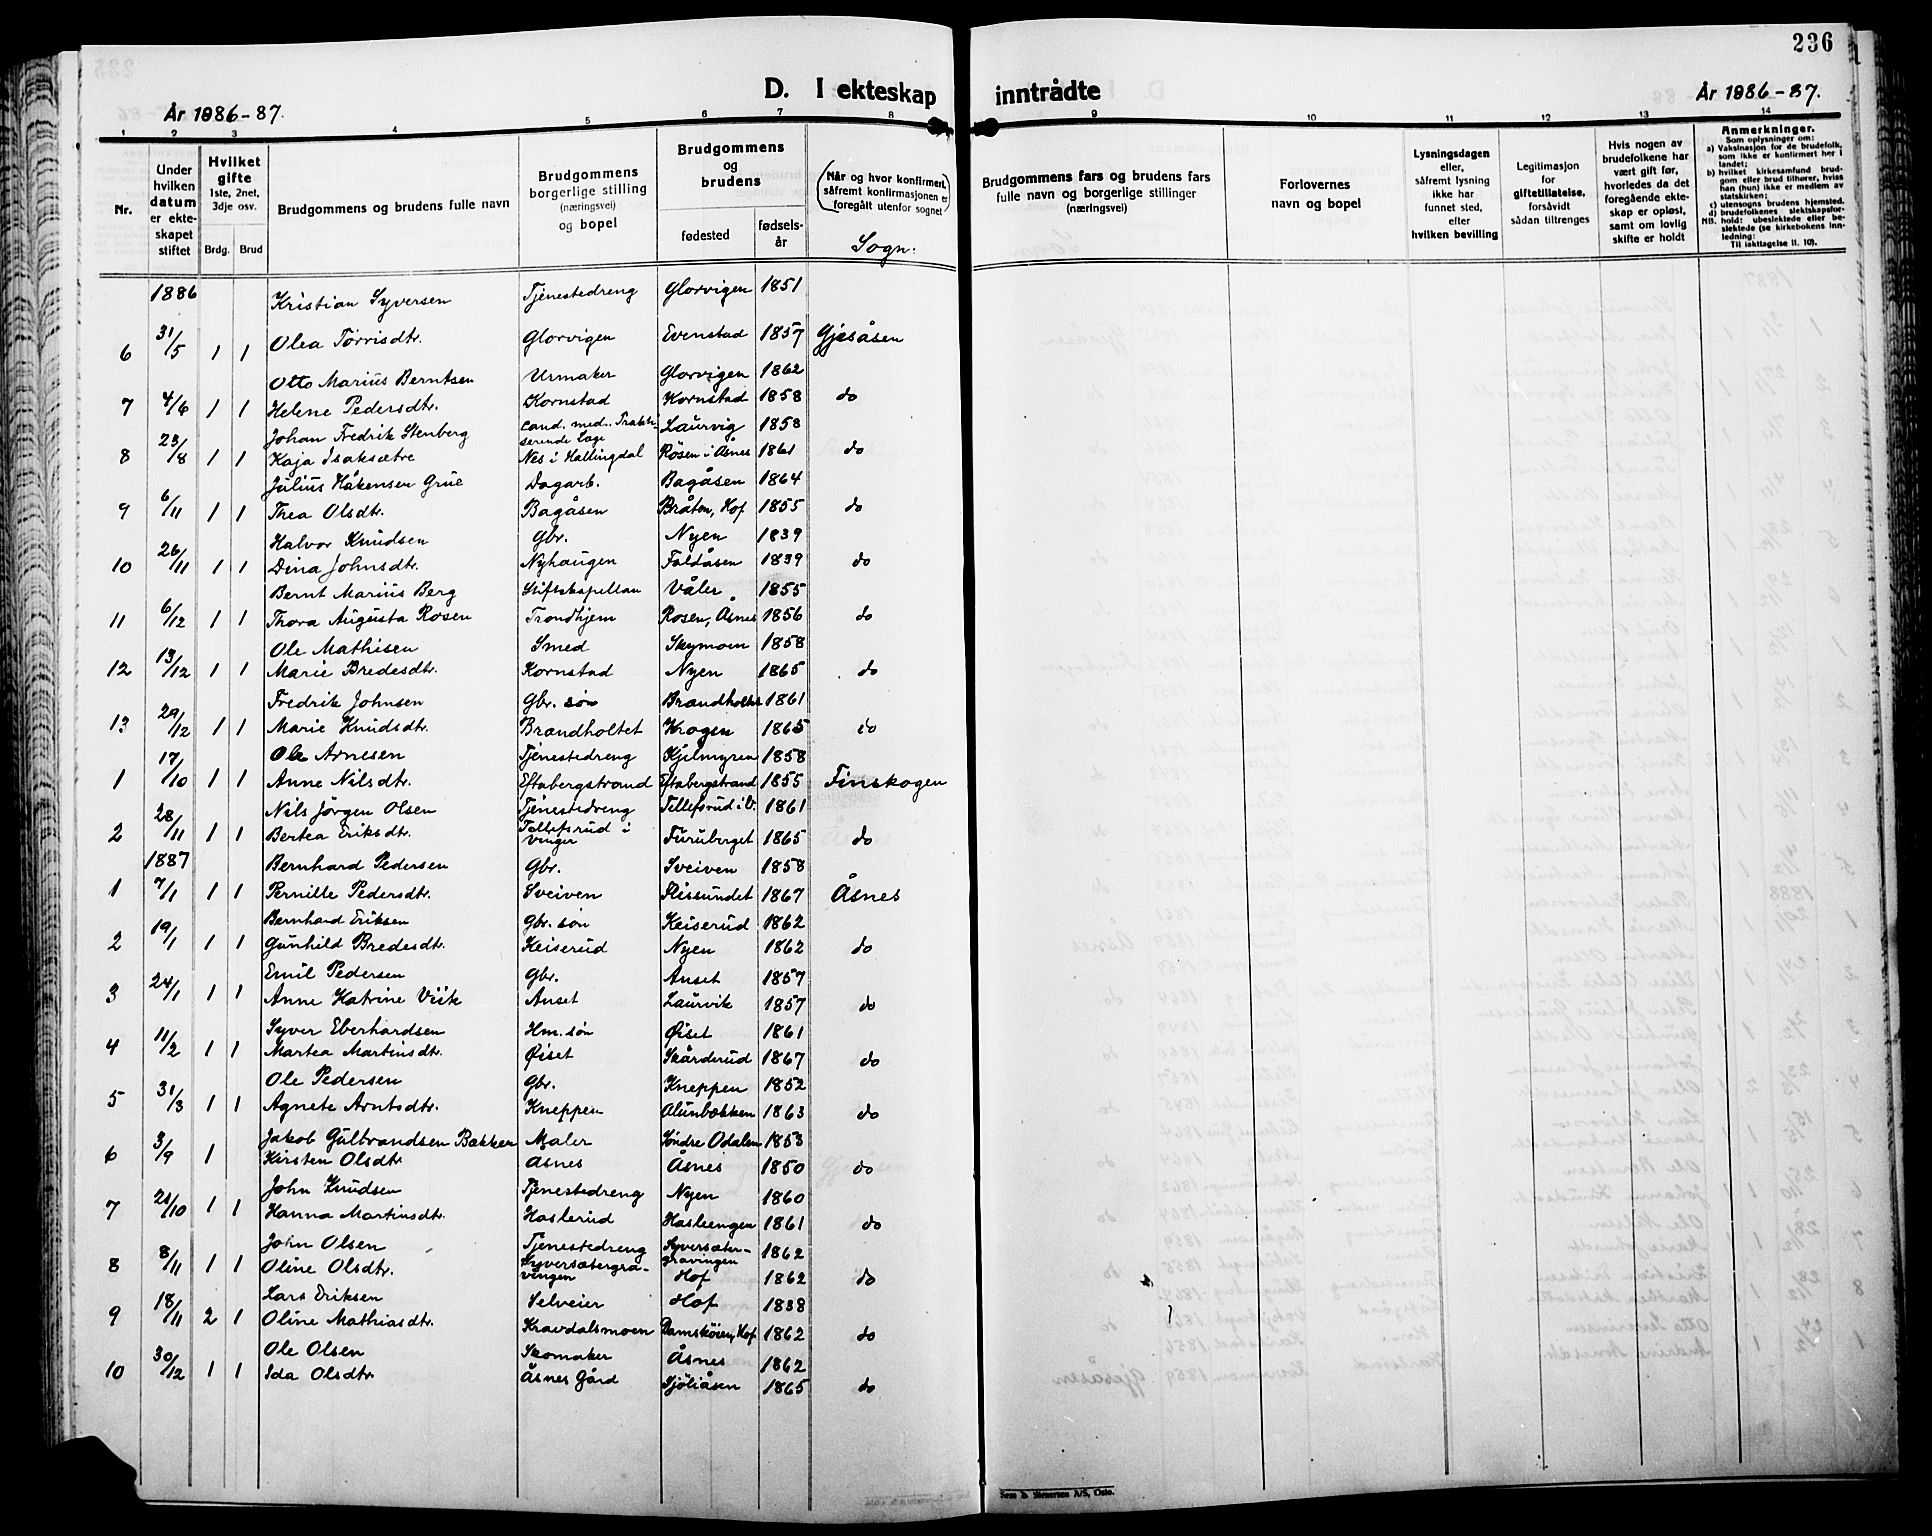 236
D. I ekteskap inntrådte
År 1886-87.
År 1886-87.
1 2 3 4 5 6 7 8 9 10 11 12 13 14
Nr.
Under hvilken datum er ekteskapet stiftet
Hvilket gifte 1ste, 2net, 3dje osv.
Brdg. Brud
Brudgommens og brudens fulle navn
Brudgommens borgerlige stilling (næringsvei) og bopel
Brudgommens og brudens
fødested
fødselsår
(Når og hvor konfirmert, såfremt konfirmasjonen er foregått utenfor sognet)
Sogn:
Brudgommens fars og brudens fars fulle navn og borgerlige stillinger (næringsvei)
Forlovernes navn og bopel
Lysningsdagen eller, såfremt lysning ikke har funnet sted, efter hvilken bevilling
Legitimasjon for giftetillatelse, forsåvidt sådan tiltrenges
Hvis nogen av brudefolkene har vært gift før, hvorledes da det foregående ekteskap er opløst, samt om lovlig skifte er holdt
Anmerkninger.
Som oplysninger om:
a) Vaksinasjon for de brudefolk, som ikke er konfirmert her i landet;
b) hvilket kirkesamfund brudgom eller brud tilhører, hviss han (hun) ikke er medlem av statskirken;
c) utensogns brudens hjemsted.
d) brudefolkenes slektskapsforhold: ubeslektede eller beslektede (se kirkebokens innledning:
NB. Til iakttagelse II. 10).
1886 Kristian Syversen Tjenestedreng Glorvigen 1851
6 31/5 1 1 Olea Tørrisdtr. Glorvigen Evenstad 1857 Gjesåsen
Otto Marius Berntsen Urmaker Glorvigen 1862
7 4/6 1 1 Helene Pedersdtr. Kornstad Kornstad 1858 do
Johan Fredrik Stenberg Cand. med. Praktiserende Læge Laurvig 1858
8 23/8 1 1 Kaja Isaksætre Nes i Hallingdal Røsen i Åsnes 1861 do
Julius Håkensen Grue Dagarb. Bagåsen 1864
9 6/11 1 1 Thea Olsdtr. Bagåsen Bråten, Hof 1855 do
Halvor Knudsen Gbr. Nyen 1839
10 26/11 1 1 Dina Johnsdtr. Nyhaugen Faldåsen 1839 do
Bernt Marius Berg Stiftskapellan Våler 1855
11 6/12 1 1 Thora Augusta Rosen Trondhjem Rosen, Åsnes 1856 do
Ole Mathisen Smed Skymoen 1858
12 13/12 1 1 Marie Bredesdtr. Kornstad Nyen 1865 do
Fredrik Johnsen Gbr. søn Brandholtet 1861
13 29/12 1 1 Marie Knudsdtr. Brandholtet Krogen 1865 do
Ole Arnesen Tjenestedreng Kjelmyren 1858
1 17/10 1 1 Anne Nilsdtr. Eftabergstrand Eftabergstrand 1855 Finskogen
Nils Jørgen Olsen Tjenestedreng Tellefsrud i V. 1861
2 28/11 1 1 Bertea Eriksdtr. Tellefsrud i Vinger Furuberget 1865 do
1887 Bernhard Pedersen Gbr. Sveiven 1858
1 7/1 1 1 Pernille Pedersdtr. Sveiven Flissundet 1867 Åsnes
Bernhard Eriksen Gbr. søn Keiserud 1862
2 19/1 1 1 Gunhild Bredesdtr. Keiserud Nyen 1862 do
Emil Pedersen Gbr. Anset 1857
3 24/1 1 1 Anne Katrine Viik Anset Laurvik 1857 do
Syver Eberhardsen Hm. søn Øiset 1861
4 11/2 1 1 Martea Martinsdtr. Øiset Skårderud 1867 do
Ole Pedersen Gbr. Kneppen 1852
5 31/3 1 1 Agnete Arntsdtr. Kneppen Alunbækken 1863 do
Jakob Gulbrandsen Bækker Maler Søndre Odalen 1853
6 3/9 1 Kirsten Olsdtr Åsnes Åsnes 1850 do
John Knudsen Tjenestedreng Nyen 1860
7 21/10 1 1 Hanna Martinsdtr. Haslerud Hasleengen 1861 do
John Olsen Tjenestedreng Syversætergravingen 1862
8 8/11 1 1 Oline Olsdtr. Syversætergravingen Hof 1862 do
Lars Eriksen Selveier Hof 1838
9 18/11 2 1 Oline Mathiasdtr. Kravdalsmoen Damskøien, Hof 1862 do
Ole Olsen Skomaker Åsnes 1862
10 30/12 1 1 Ida Olsdtr Åsnes Gård Sjøliåsen 1865 do
Sem & Stenersen A/S, Oslo.